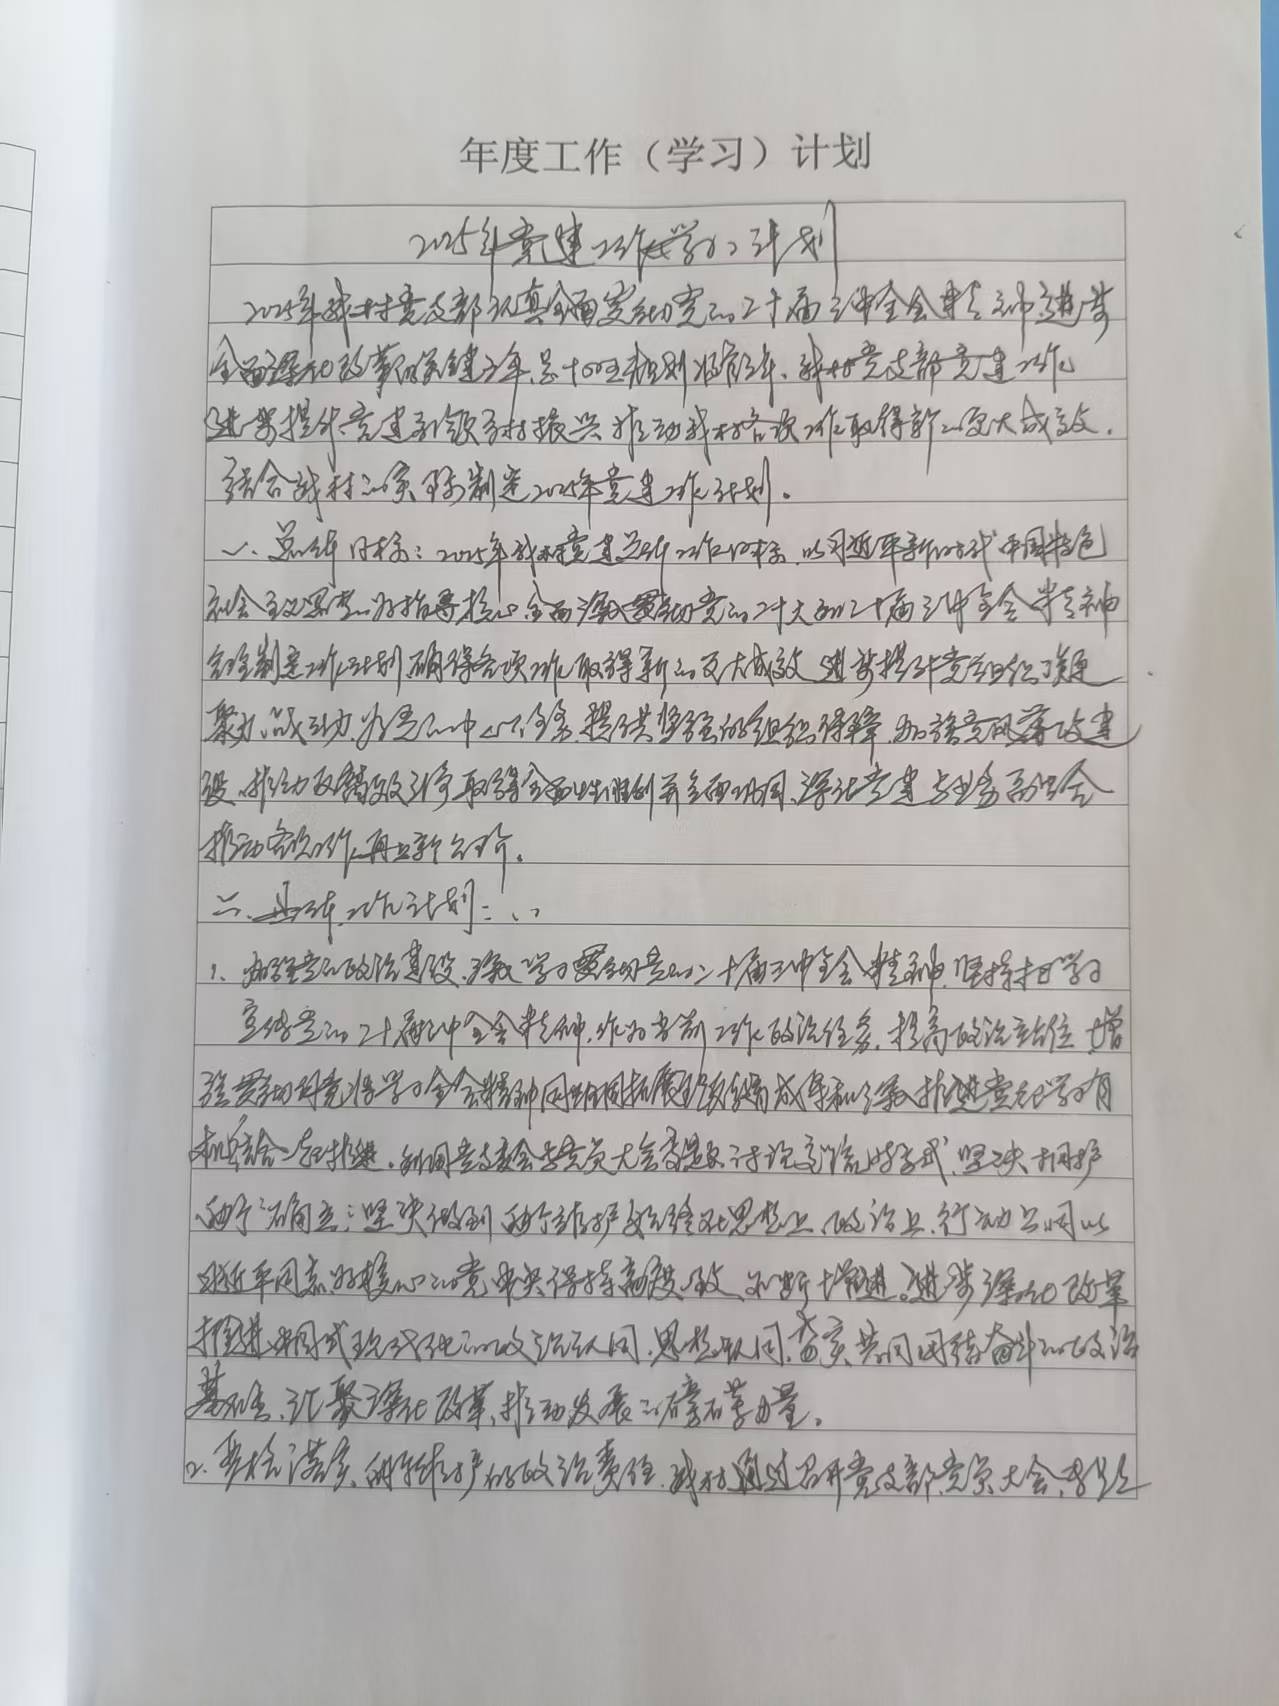 年度工作（学习）计划
2025年党建工作（学习）计划
2025年我村党支部认真全面贯彻党的二十届三中全会精神，进一步
全面深化改革的关键之年，是十四五规划收官之年，我村党支部党建工作
进一步提升党建引领乡村振兴，推动我村各项工作取得新的更大成效，
结合我村的实际制定2025年党建工作计划。
一、总体目标：2025年我村党建总体工作目标，以习近平新时代中国特色
社会主义思想为指导核心，全面深入贯彻党的二十大和二十届三中全会精神
合理制定工作计划，确保各项工作取得新的更大成效，进一步提升党组织
聚力、战斗力，为党的中心任务，提供坚强的组织保障，加强党风廉政建
设，推动反腐败斗争取得全面性胜利并全面巩固，深化党建与业务融合
推动各项工作再上新台阶。
二、具体工作计划：
1、加强党的政治建设，深入学习贯彻党的二十届三中全会精神，坚持把学习
宣传党的二十届三中全会精神，作为当前工作政治任务，提高政治站位，增
强贯彻 学习全会精神 推进党 学习有
机结合一起推进，利用党支委会与党员大会 讨论交流 形式，坚决拥护
两个确立，坚决做到两个维护，始终在思想上、政治上、行动上同以
习近平同志为核心的党中央保持高度一致，不断增进进一步深化改革
推进中国式现代化的政治认同，思想认同，夯实共同团结奋斗的政治
基础，汇聚深化改革，推动发展的磅礴力量。
2、严格落实 维护的政治责任，我村通过召开党支部党员大会，